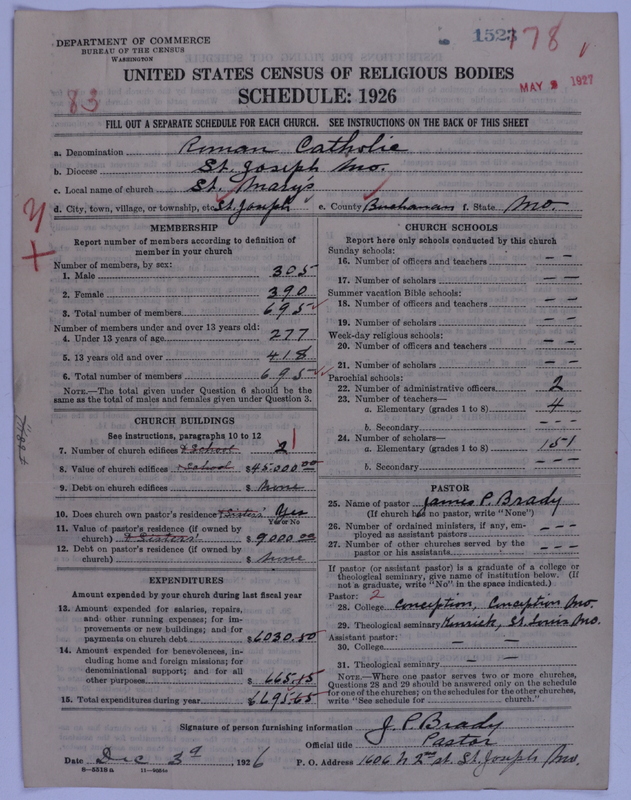 1523
178
DEPARTMENT OF COMMERCE
BUREAU OF THE CENSUS
WASHINGTON
MAY 2 1927
UNITED STATES CENSUS OF RELIGIOUS BODIES
83
SCHEDULE: 1926
FILL OUT A SEPARATE SCHEDULE FOR EACH CHURCH. SEE INSTRUCTIONS ON THE BACK OF THIS SHEET
a. Denomination Roman Catholic
b. Diocese St. Joseph Mo.
c. Local name of church St. Mary's
d. City, town, village, or township, etc. St. Joseph e. County Buchanan f. State Mo.
MEMBERSHIP
Report number of members according to definition of
member in your church
Number of members, by sex:
1. Male 305
2. Female 390
3. Total number of members 695
Number of members under and over 13 years old:
4. Under 13 years of age 277
5. 13 years old and over 418
6. Total number of members 695
NOTE.—The total given under Question 6 should be the
same as the total of males and females given under Question 3.
CHURCH BUILDINGS
See instructions, paragraphs 10 to 12
7. Number of church edifices & School 2 1
8. Value of church edifices & School $45.000.00
9. Debt on church edifices $ none
10. Does church own pastor's residence & Sisters' Yes
Yes or No
11. Value of pastor's residence (if owned by
church) & Sisters' $ 9000.00
12. Debt on pastor's residence (if owned by
church) $ none
EXPENDITURES
Amount expended by your church during last fiscal year
13. Amount expended for salaries, repairs,
and other running expenses; for im-
provements or new buildings; and for
payments on church debt $6030.50
14. Amount expended for benevolences, in-
cluding home and foreign missions; for
denominational support; and for all
other purposes $ 665.15
15. Total expenditures during year $6695.65
CHURCH SCHOOLS
Report here only schools conducted by this church
Sunday schools:
16. Number of officers and teachers – –
17. Number of scholars – –
Summer vacation Bible schools:
18. Number of officers and teachers – –
19. Number of scholars – –
Week-day religious schools:
20. Number of officers and teachers – –
21. Number of scholars – –
Parochial schools:
22. Number of administrative officers 2
23. Number of teachers—
a. Elementary (grades 1 to 8) 4
b. Secondary – –
24. Number of scholars—
a. Elementary (grades 1 to 8) 151
b. Secondary – –
PASTOR
25. Name of pastor James P. Brady
(If church has no pastor, write "None")
26. Number of ordained ministers, if any, em-
ployed as assistant pastors – – –
27. Number of other churches served by the
pastor or his assistants – – –
If pastor (or assistant pastor) is a graduate of a college or
theological seminary, give name of institution below. (If
not a graduate, write "No" in the space indicated.)
Pastor: 2
28. College Conception, Conception Mo.
29. Theological seminary Kenrick, St. Louis Mo.
Assistant pastor:
30. College – –
31. Theological seminary – –
NOTE.—Where one pastor serves two or more churches,
Questions 28 and 29 should be answered only on the schedule
for one of the churches; on the schedules for the other churches,
write "See schedule for church."
Signature of person furnishing information J. P. Brady
Official title Pastor
Date Dec 3d, 1926 P. O. Address 1606 N 2nd st. St. Joseph Mo.
8—5518a